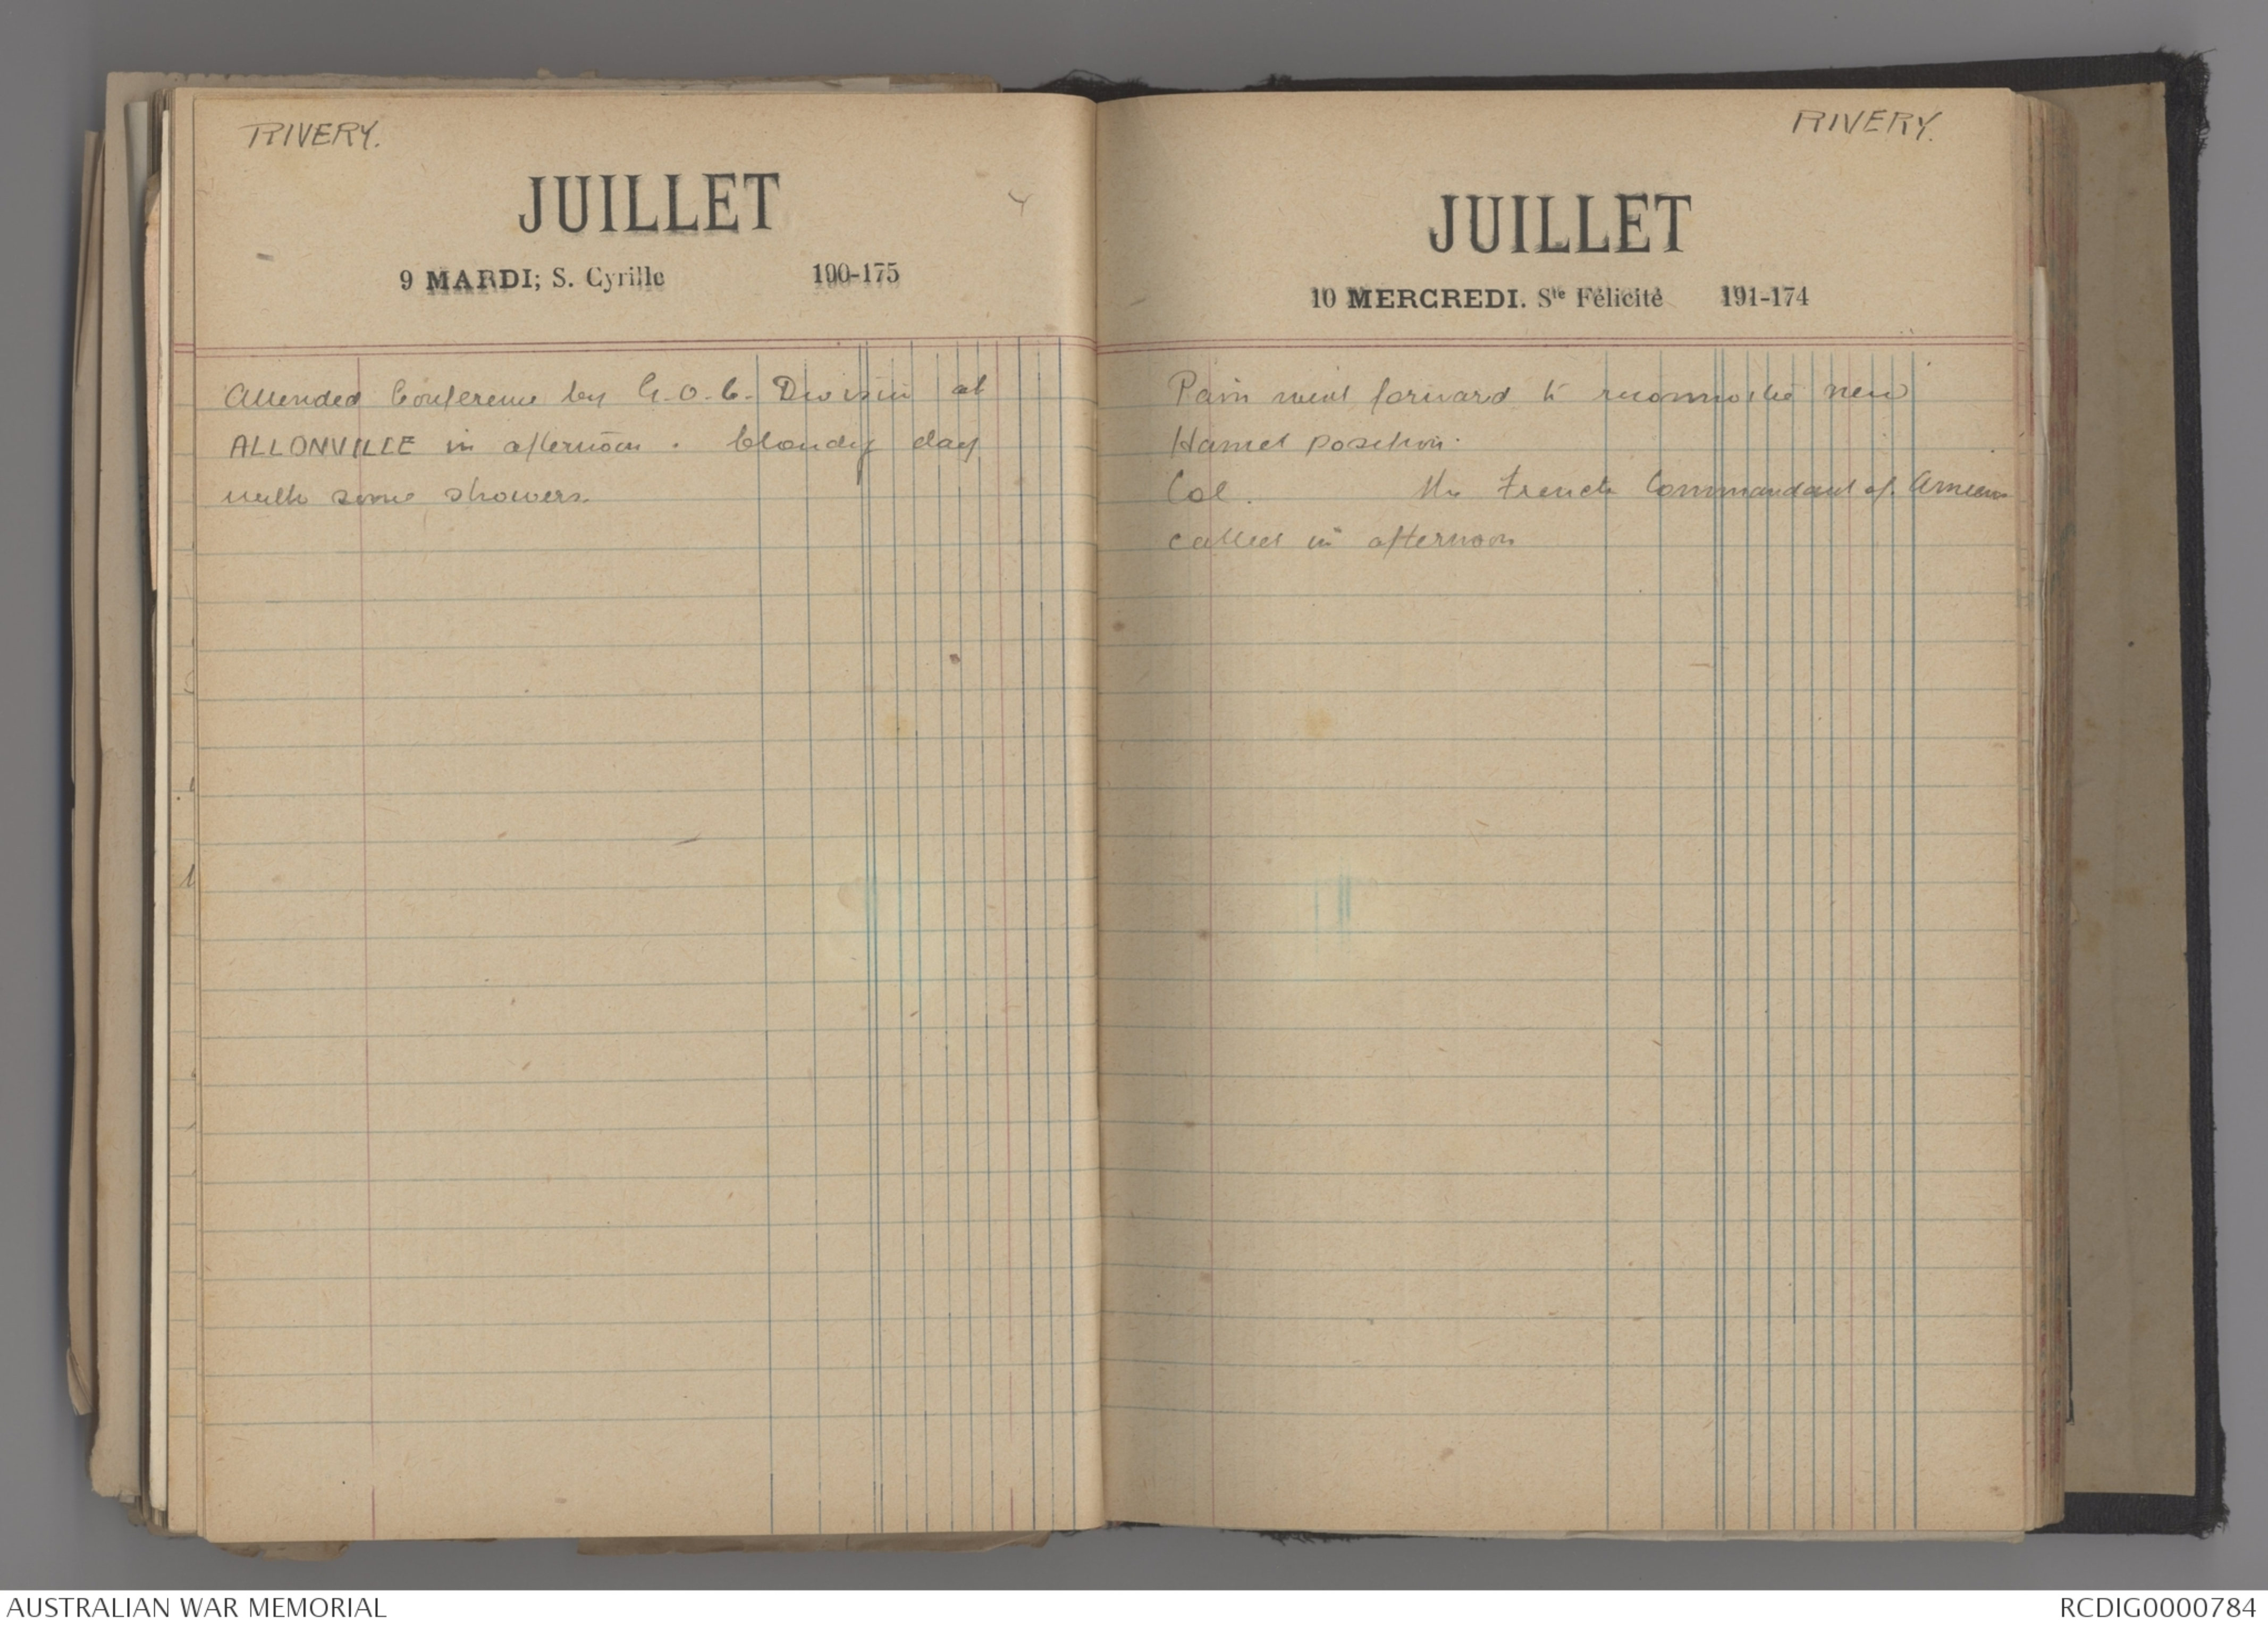 RIVERY.
JUILLET
9 MARDI; S. Cyrille 190-175
Attended Conference by G.O.C. Division at
ALLONVILLE in afternoon. Cloudy day
with some showers.
RIVERY.
JUILLET
10 MERCREDI. Ste Félicité 191-174
Pain went forward to reconnoitre new
Hamel position.
Col. the French Commandant of Amiens
called in afternoon
AUSTRALIAN WAR MEMORIAL
RCDIG0000784